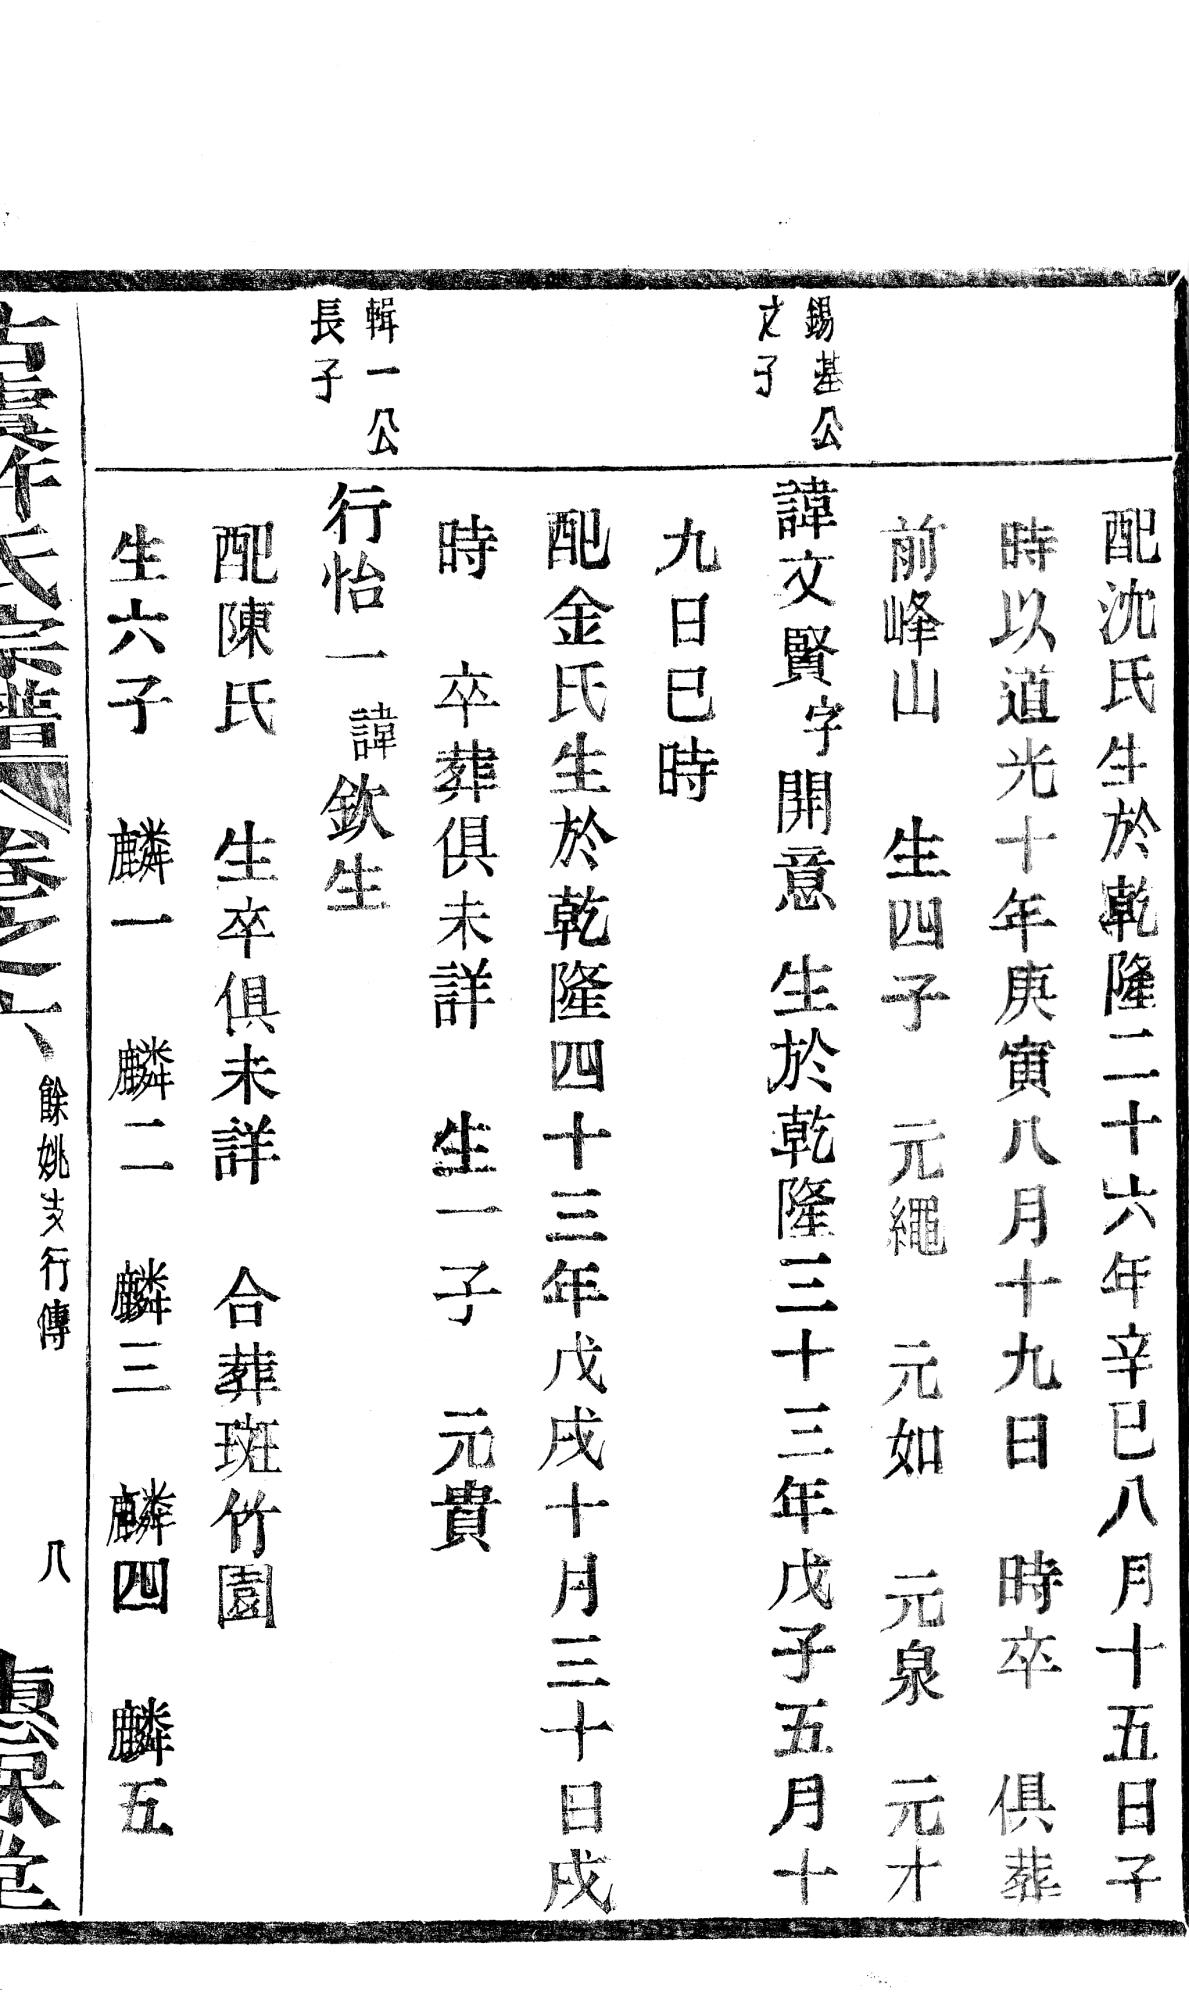 配沈氏生於乾隆二十六年辛巳八月十五日子
時以道光十年庚寅八月十九日　時卒　俱葬
前峰山　生四子　元繩　元如　元泉　元才
錫基公
次子
諱文賢字開意　生於乾隆三十三年戊子五月十
九日巳時
配金氏生於乾隆四十三年戊戌十月三十日戌
時　卒葬俱未詳　生一子　元貴
輯一公
長子
行怡一諱欽生
配陳氏　生卒俱未詳　合葬斑竹園
生六子　麟一　麟二　麟三　麟四　麟五
古虞許氏宗譜　卷之六　餘姚支行傳　八　惠保堂